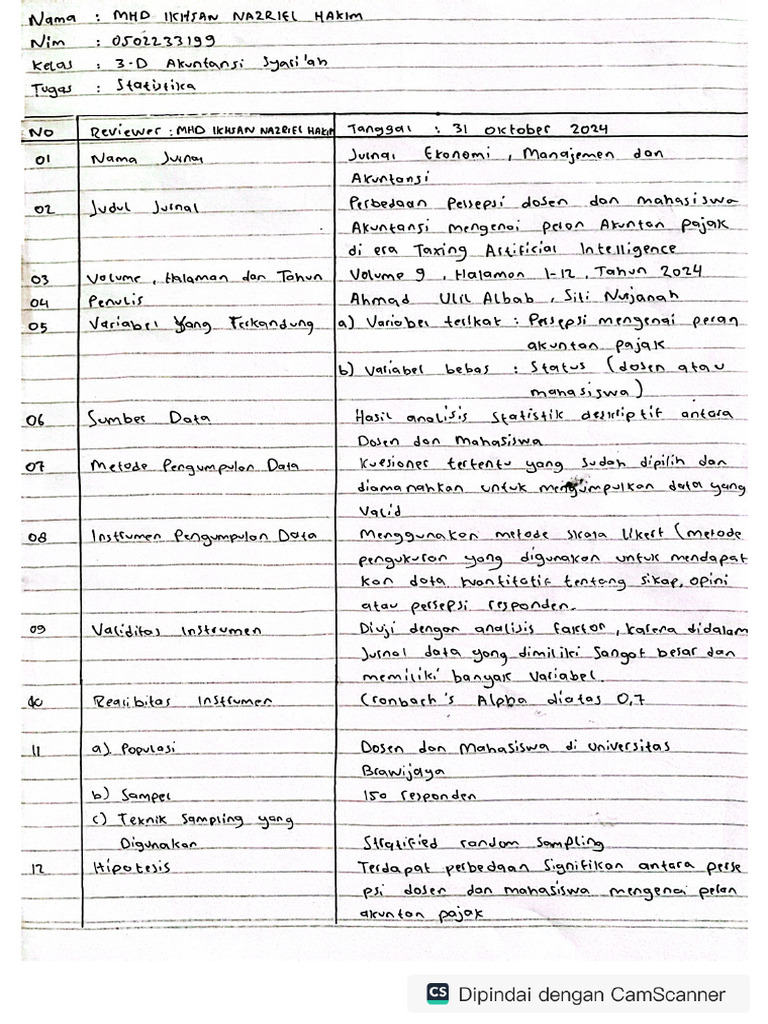 Nama : MHD IKHSAN NAZRIEL HAKIM
Nim : 0502233199
Kelas : 3-D Akuntansi Syari'ah
Tugas : Statistika
NO Reviewer : MHD IKHSAN NAZRIEL HAKIM Tanggal : 31 Oktober 2024
01 Nama Jurnal Jurnal Ekonomi, Manajemen dan
Akuntansi
02 Judul Jurnal Perbedaan Persepsi dosen dan mahasiswa
Akuntansi mengenai peran Akuntan pajak
di era Taxing Artificial Intelligence
03 Volume, Halaman dan Tahun Volume 9, Halaman 1-12, Tahun 2024
04 Penulis Ahmad Ulil Albab, Siti Nurjanah
05 Variabel Yang Terkandung a) Variabel terikat : Persepsi mengenai peran
akuntan pajak
b) Variabel bebas : Status (dosen atau
mahasiswa)
06 Sumber Data Hasil analisis statistik deskriptif antara
Dosen dan Mahasiswa
07 Metode Pengumpulan Data Kuesioner tertentu yang sudah dipilih dan
diamanahkan untuk mengumpulkan data yang
Valid
08 Instrumen Pengumpulan Data Menggunakan metode skala likert (metode
pengukuran yang digunakan untuk mendapat
kan data kuantitatif tentang sikap, opini
atau persepsi responden.
09 Validitas Instrumen Diuji dengan analisis faktor, karena didalam
Jurnal data yang dimiliki sangat besar dan
memiliki banyak variabel.
10 Realibitas Instrumen Cronbach's Alpha diatas 0,7
11 a) Populasi Dosen dan Mahasiswa di universitas
Brawijaya
b) Sampel 150 responden
c) Teknik Sampling yang
Digunakan Stratified random sampling
12 Hipotesis Terdapat perbedaan Signifikan antara perse
psi dosen dan mahasiswa mengenai peran
akuntan pajak
CS Dipindai dengan CamScanner